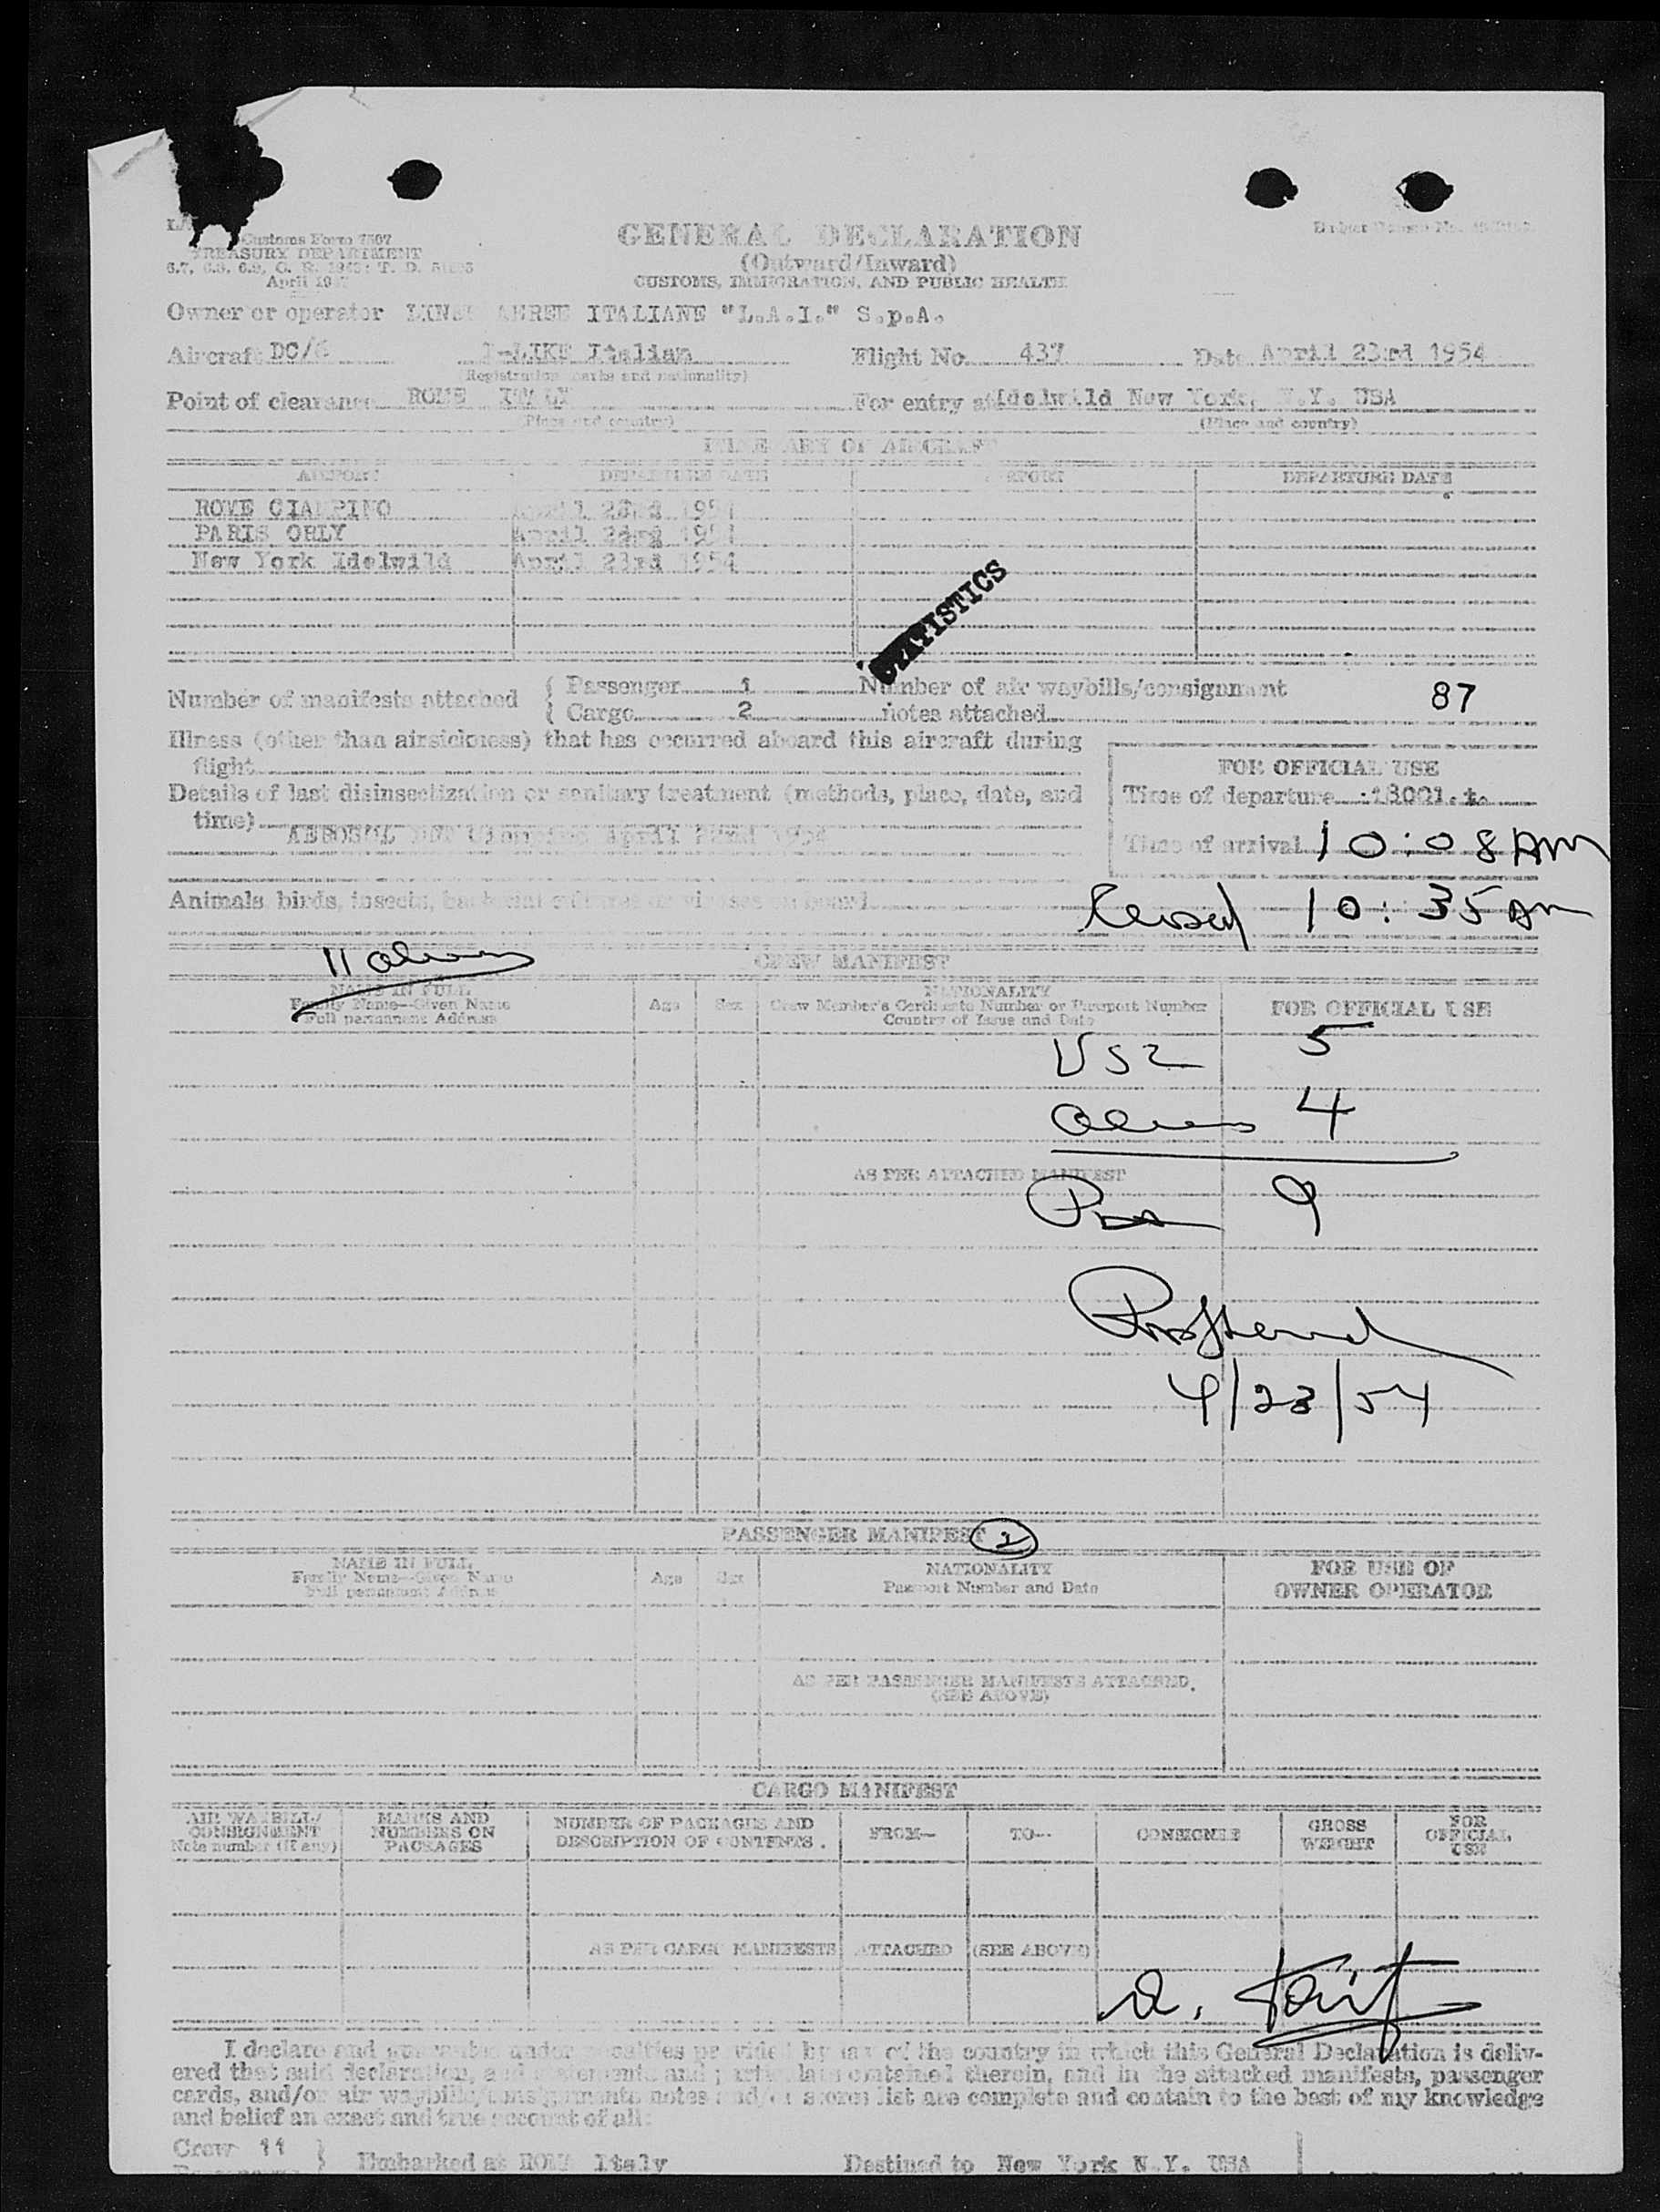 Customs Form 7507
TREASURY DEPARTMENT
April
GENERAL DECLARATION
(Outward/Inward)
CUSTOMS, IMMIGRATION, AND PUBLIC HEALTH
Owner or operator ITALIANE "L.A.I." S.p.A.
Aircraft DC/6 I-LIKE Italian Flight No. 437 Date April 23rd 1954
(Registration marks and nationality)
Point of clearance ROME ITALY For entry at Idelwild New York, N.Y. USA
(Place and country) (Place and country)
ITINERARY OF AIRCRAFT
AIRPORT DEPARTURE DATE AIRPORT DEPARTURE DATE
ROME CIAMPINO April 1954
PARIS ORLY April 1954
New York Idelwild April 23rd 1954
STATISTICS
Number of manifests attached Passenger 1 Number of air waybills/consignment 87
Cargo 2 notes attached
Illness (other than airsickness) that has occurred aboard this aircraft during
flight
FOR OFFICIAL USE
Details of last disinsectization or sanitary treatment (methods, place, date, and
time)
Time of departure
Time of arrival 10:08 AM
Animals, birds, insects, on board
10:35 AM
11 aliens
CREW MANIFEST
NAME IN FULL
Family Name—Given Name
Full permanent Address
Age Sex
NATIONALITY
Crew Member's Certificate Number or Passport Number
Country of Issue and Date
FOR OFFICIAL USE
5
aliens 4
AS PER ATTACHED MANIFEST
9
4/23/54
PASSENGER MANIFEST 2
NAME IN FULL
Family Name—Given Name
Full permanent Address
Age Sex
NATIONALITY
Passport Number and Date
FOR USE OF
OWNER OPERATOR
AS PER PASSENGER MANIFESTS ATTACHED.
(SEE ABOVE)
CARGO MANIFEST
AIR WAYBILL/
CONSIGNMENT
Note number (if any)
MARKS AND
NUMBERS ON
PACKAGES
NUMBER OF PACKAGES AND
DESCRIPTION OF CONTENTS.
FROM— TO— CONSIGNEE
GROSS
WEIGHT
FOR
OFFICIAL
USE
AS PER CARGO MANIFESTS ATTACHED (SEE ABOVE)
I declare and under penalties provided by law of the country in which this General Declaration is deliv-
ered that said declaration, and statements and particulars contained therein, and in the attached manifests, passenger
cards, and/or air waybills/consignments notes and/or stores list are complete and contain to the best of my knowledge
and belief an exact and true account of all:
Crew 11 Embarked at ROME Italy Destined to New York N.Y. USA